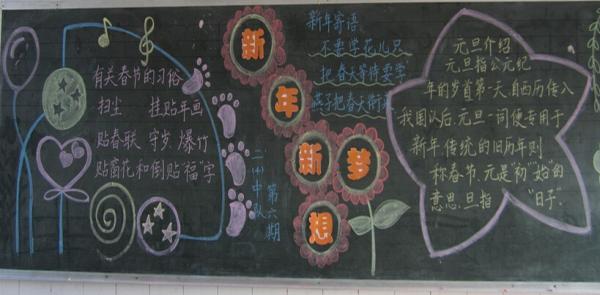 有关春节的习俗
扫尘 挂贴年画
贴春联 守岁 爆竹
贴窗花和倒贴“福”字
新
年
新
梦
想
二·(4)中队
第六期
新年寄语
不要学花儿只
把春天等待要学
燕子把春天衔来
元旦介绍
元旦指公元纪
年的岁首第一天.自西历传入
我国以后,元旦一词便专用于
新年,传统的旧历年则
称春节.元是“初”“始”的
意思.旦指“日子”.